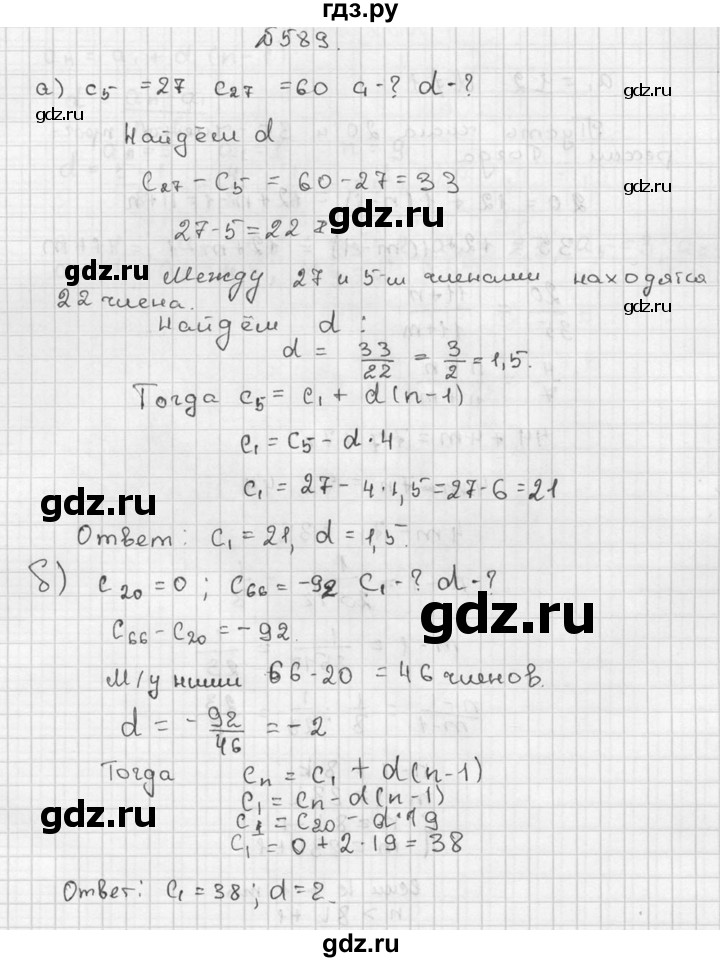 гдз.ру
№589.
а) c₅ = 27 c₂₇ = 60 a-? d-?
gdz.ru
gdz.ru
Найдём d
c₂₇ - c₅ = 60-27 = 33
gdz.ru
27-5=22
gdz.ru
Между 27 и 5-м членами находятся
22 члена.
gdz.ru
Найдём d:
d = 33/22 = 3/2 = 1,5.
Тогда c₅ = c₁ + d(n-1)
c₁ = c₅ - d·4
gdz.ru
c₁ = 27 - 4·1,5 = 27-6 = 21
Ответ: c₁ = 21, d = 1,5.
б) c₂₀ = 0; c₆₆ = -92 c₁-? d-?
gdz.ru
c₆₆ - c₂₀ = -92.
М/у ними 66-20 = 46 членов.
d = -92/46 = -2
Тогда cₙ = c₁ + d(n-1)
c₁ = cₙ - d(n-1)
gdz.ru
gdz.ru
c₁ = c₂₀ - d·19
c₁ = 0 + 2·19 = 38
Ответ: c₁ = 38; d = 2.
gdz.ru
gdz.ru